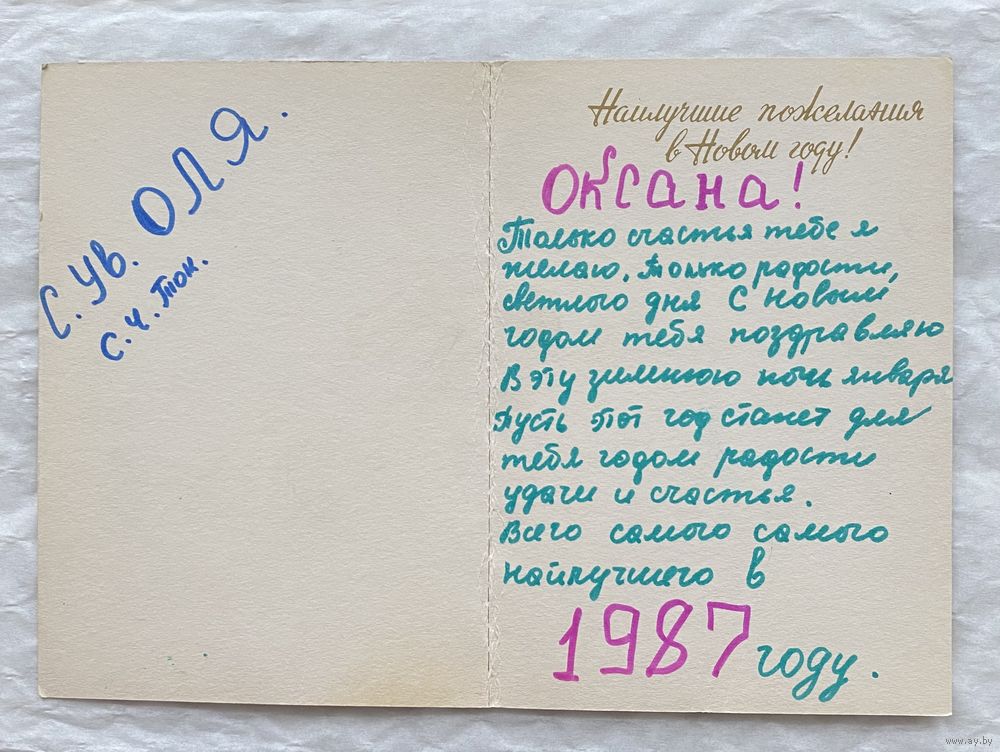 С. Ув. ОЛЯ.
С. Ч. Ток.
Наилучшие пожелания
в Новом году!
Оксана!
Только счастья тебе я
желаю, только радости,
светлого дня С новым
годом тебя поздравляю
В эту зимнюю ночь января
Пусть этот год станет для
тебя годом радости
удачи и счастья.
Всего самого самого
наилучшего в
1987 году.
www.ay.by